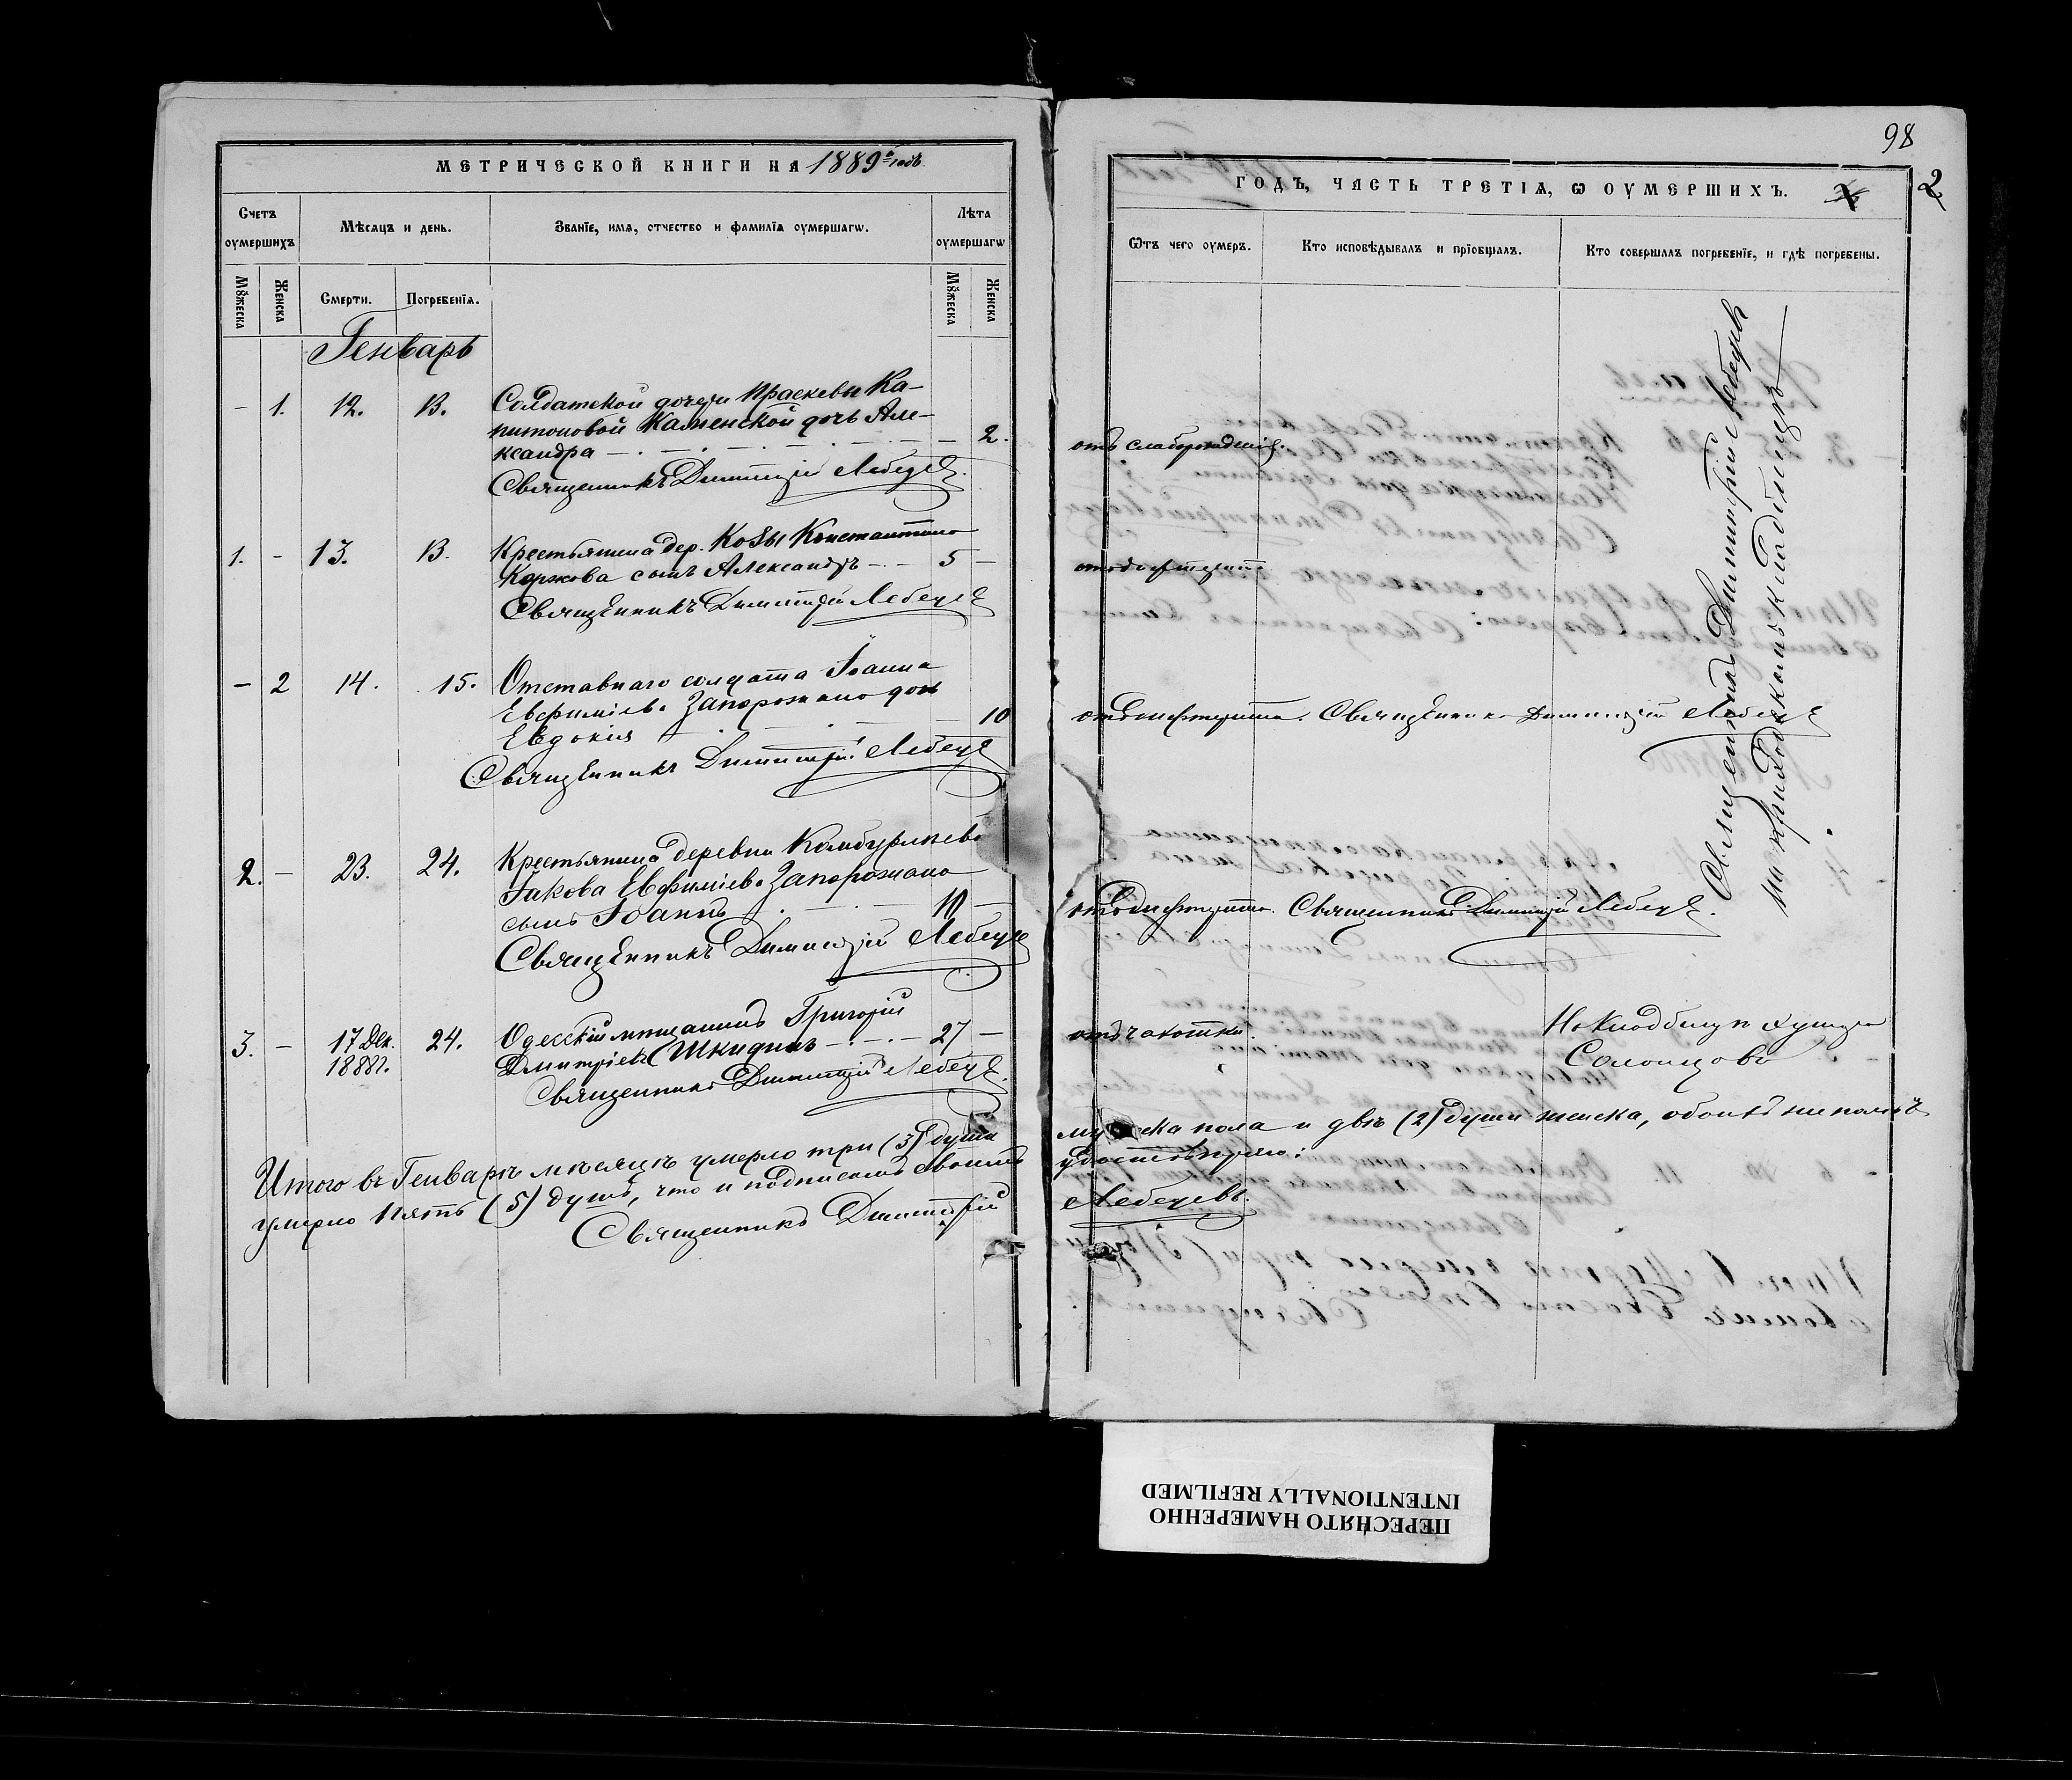 МЕТРИЧЕСКОЙ КНИГИ НА 1889й годъ
Счетъ оумершихъ
Мѣсяцъ и день.
Званїе, имя, отчество и фамилїя оумершагѡ.
Лѣта оумершагѡ
Мꙋжеска
Женска
Смерти.
Погребенїя.
Мꙋжеска
Женска
Генварь
– 1. 12. 13. Солдатской дочери Праскевы Ка-
питоновой Каменской дочь Але-
ксандра — 2.
Священникъ Димитрій Лебедев
1. – 13. 13. Крестьянина дер. Козы Константина
Коржова сынъ Александръ — 5 –
Священникъ Димитрій Лебедев
– 2 14. 15. Отставнаго солдата Іоанна
Евфиміева Запорожана дочь
Евдокия — 10
Священникъ Димитрій Лебедев
2. – 23. 24. Крестьянина деревни
Іакова Евфиміева Запорожана
сынъ Іоаннъ 10 –
Священникъ Димитрій Лебедев
3. – 17 Дек. 1888г. 24. Одесскій мещанинъ Григорій
Дмитріев Шкидинъ — 27 –
Священникъ Димитрій Лебедев
Итого въ Генварѣ мѣсяцѣ умерло три (3) души
умерло пять (5) душъ, что и подписомъ своимъ
Священникъ Димитрій
98
ГОДЪ, ЧАСТЬ ТРЕТІА, Ѡ ОУМЕРШИХЪ.
2
Ѿтъ чего оумеръ.
Кто исповѣдывалъ и прїобщалъ.
Кто совершалъ погребенїе, и гдѣ погребены.
отъ слаборожденія.
отъ дифтерита
отъ дифтерита. Священникъ Димитрій Лебедев
отъ дифтерита. Священникъ Димитрій Лебедев.
отъ чахотки.
На кладбищѣ хутора
Священникъ Димитрій Лебедевъ
на приходскомъ кладбищѣ
мужеска пола и двѣ (2) души женска, обоихъ же половъ
удостовѣряю:
Лебедевъ.
ПЕРЕСНЯТО НАМЕРЕННО
INTENTIONALLY REFILMED